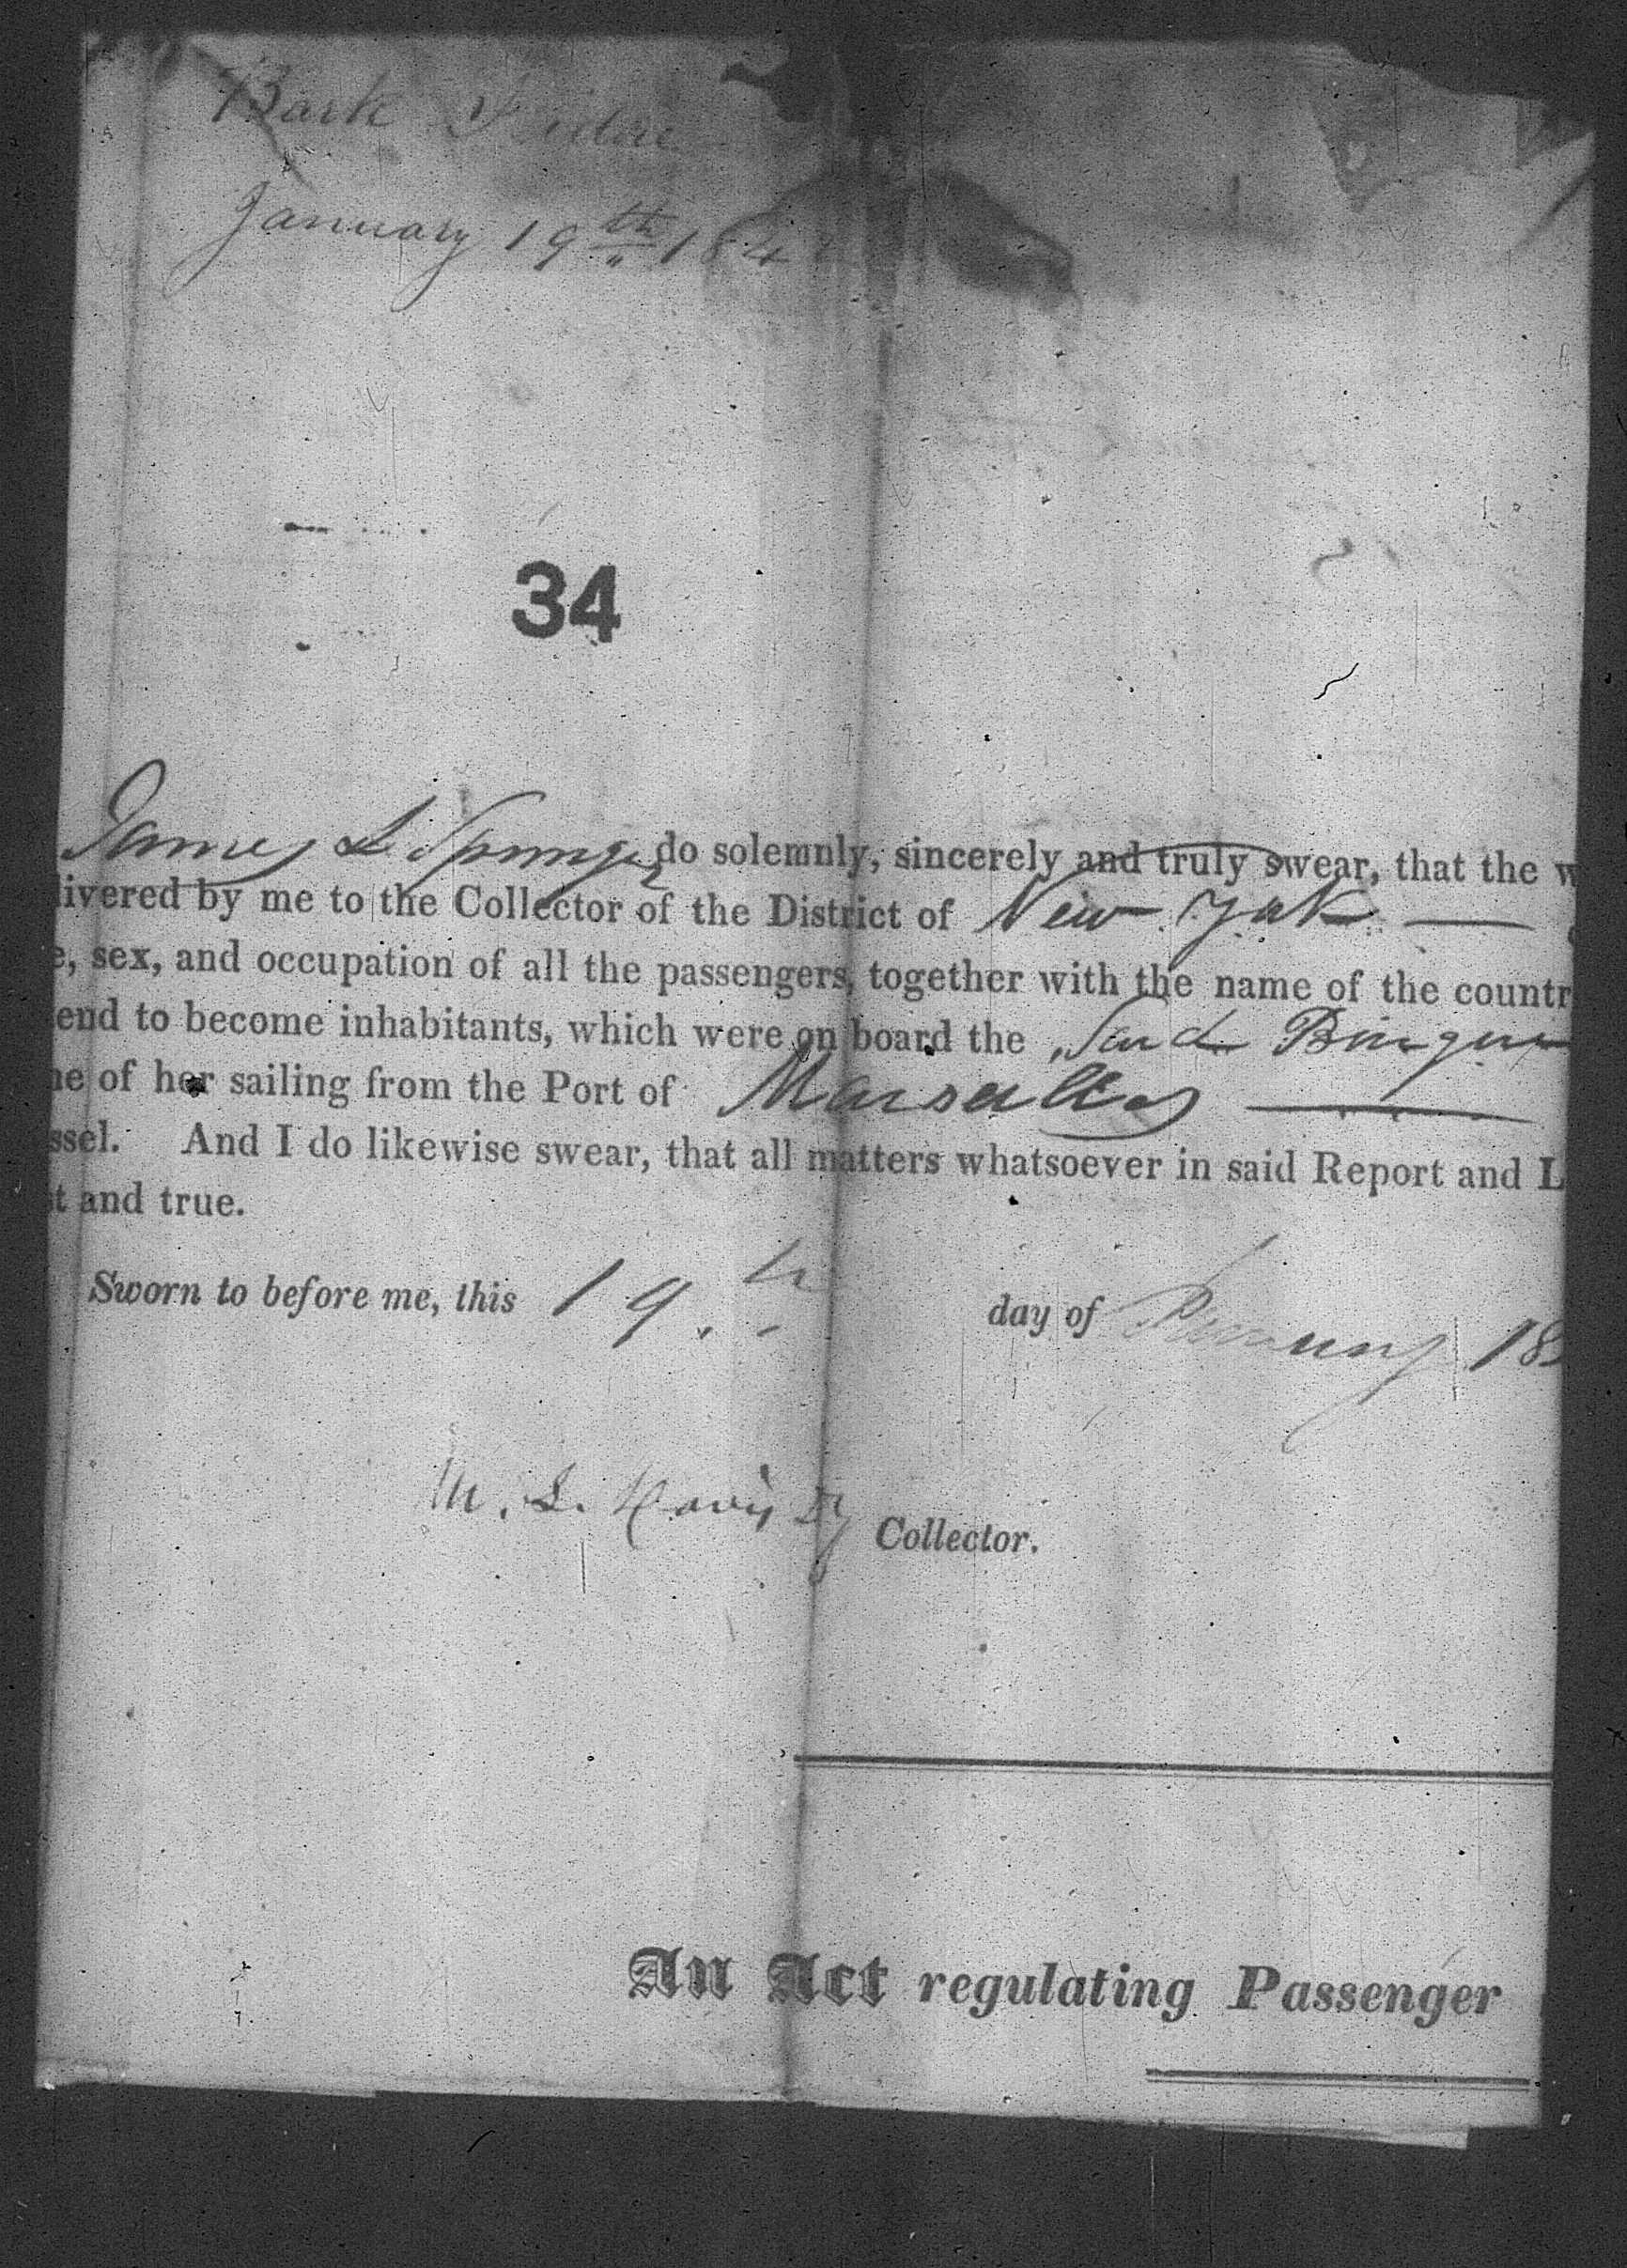 Bark
January 19th 184
34
James L Springer do solemnly, sincerely and truly swear, that the w
livered by me to the Collector of the District of New York
e, sex, and occupation of all the passengers, together with the name of the countr
end to become inhabitants, which were on board the Said
ne of her sailing from the Port of Marseilles
ssel. And I do likewise swear, that all matters whatsoever in said Report and L
t and true.
Sworn to before me, this 19th day of January 18
M. L. Davis Dy Collector.
An Act regulating Passenger